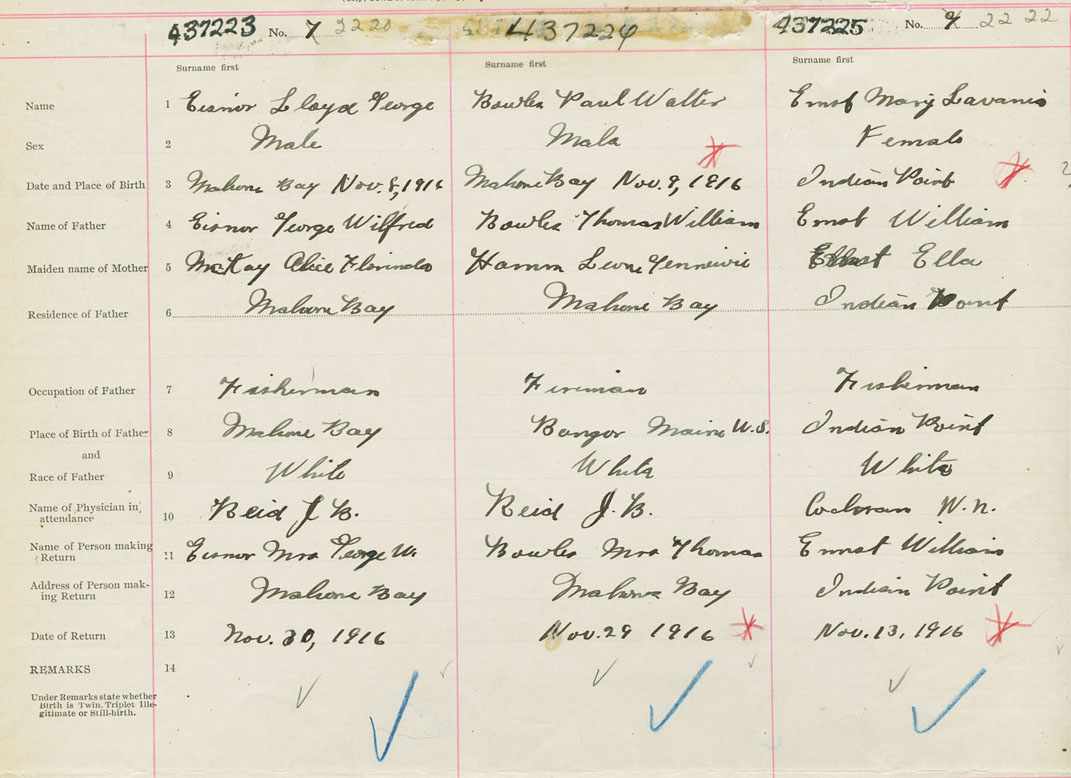 437223 No. 7 2220 437224 437225 No. 9 22 22
Surname first Surname first Surname first
Name 1 Eisnor Lloyd George Bowles Paul Walter Ernst Mary Lavania
Sex 2 Male Male Female
Date and Place of Birth 3 Mahone Bay Nov. 8, 1916 Mahone Bay Nov. 9, 1916 Indian Point
Name of Father 4 Eisnor George Wilfred Bowles Thomas William Ernst William
Maiden name of Mother 5 McKay Alice Florinda Hamm Ella
Residence of Father 6 Mahone Bay Mahone Bay Indian Point
Occupation of Father 7 Fisherman Fireman Fisherman
Place of Birth of Father 8 Mahone Bay Bangor Maine U.S. Indian Point
and
Race of Father 9 White White White
Name of Physician in
attendance 10 Reid J. B. Reid J. B. Cochran W. N.
Name of Person making
Return 11 Eisnor Mrs George W. Bowles Mrs Thomas Ernst William
Address of Person mak-
ing Return 12 Mahone Bay Mahone Bay Indian Point
Date of Return 13 Nov. 30, 1916 Nov. 29 1916 Nov. 13, 1916
REMARKS 14
Under Remarks state whether
Birth is Twin, Triplet Ille-
gitimate or Still-birth.